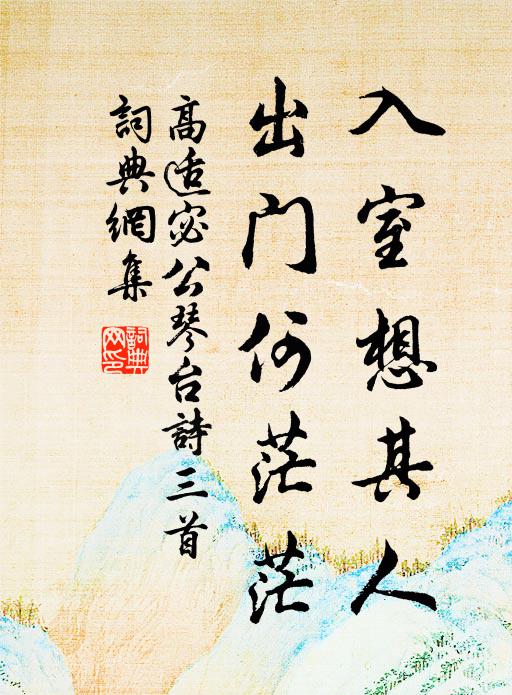 入室想其人
出门何茫茫
高适宓公琴台詩三首
詞典網集
詞典
网印